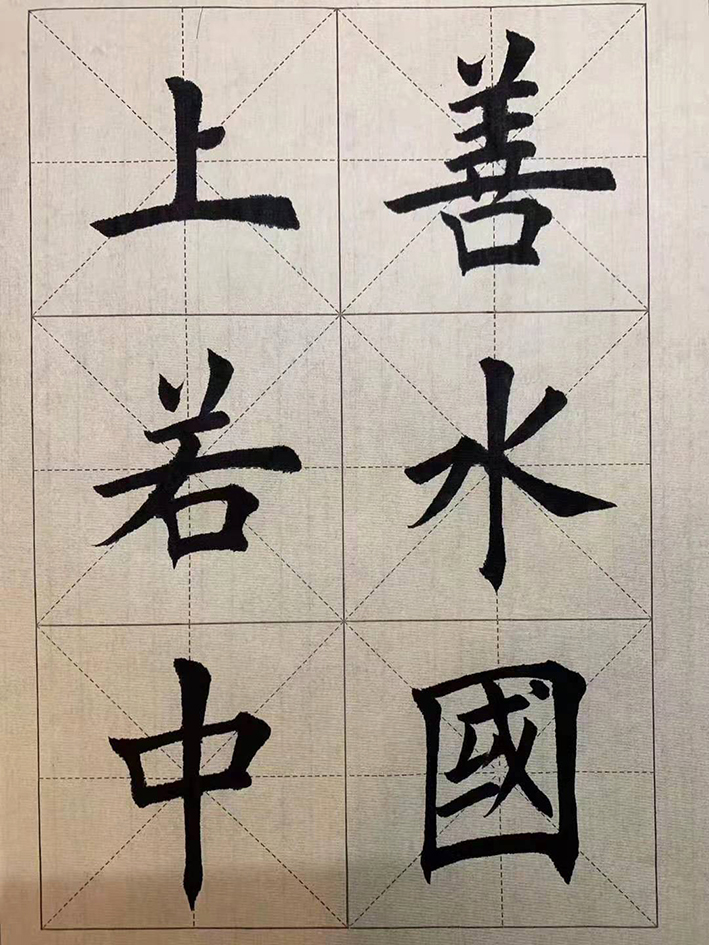 上善
若水
中國